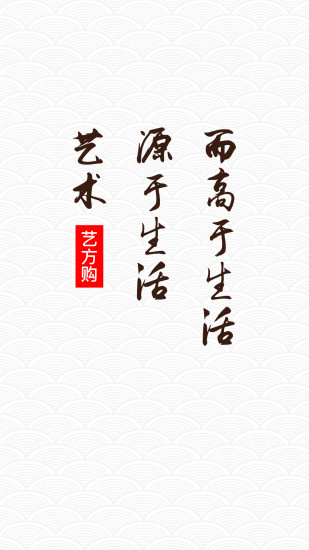 艺术
艺方购
源于生活
而高于生活